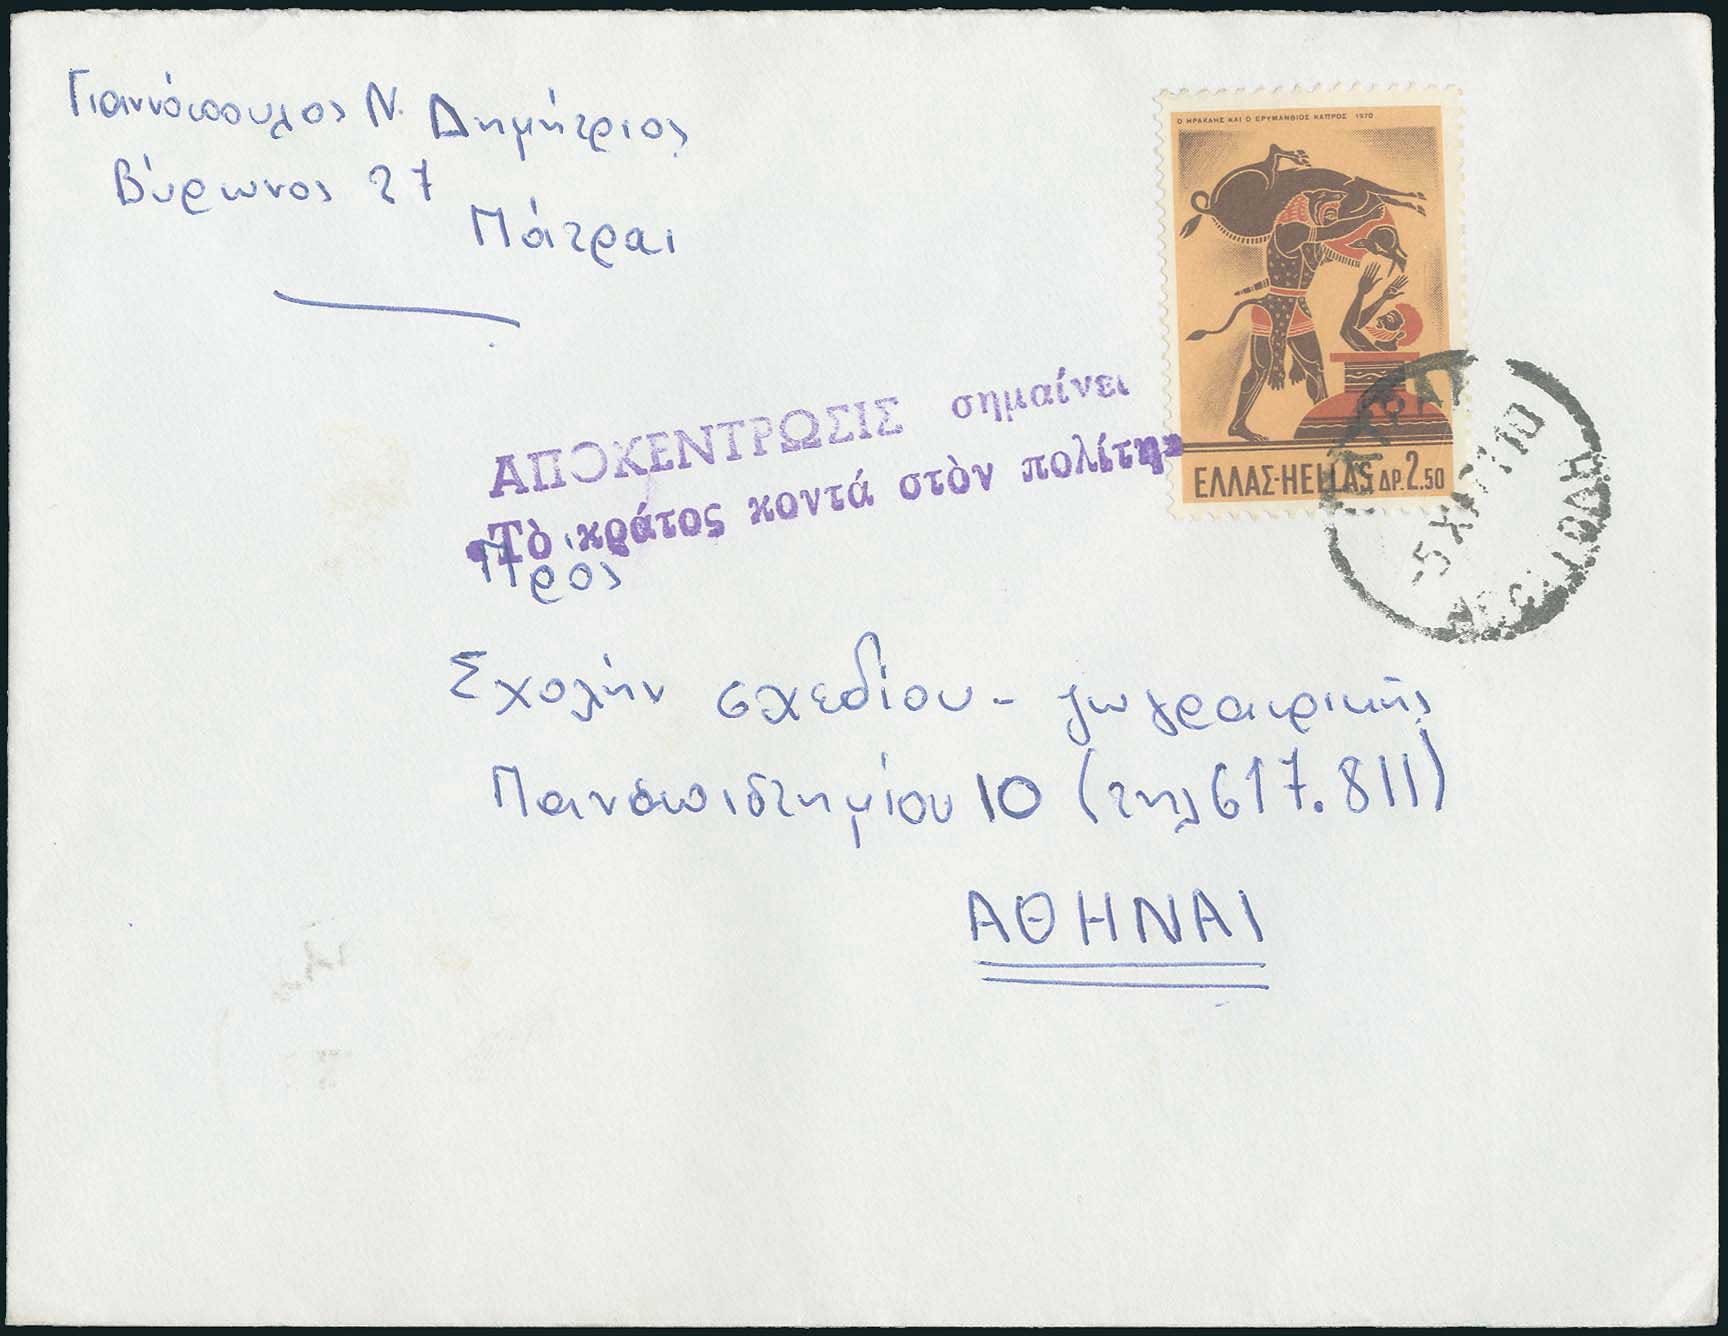 Γιαννόπουλος Ν. Δημήτριος
Βύρωνος 27
Πάτραι
Ο ΗΡΑΚΛΗΣ ΚΑΙ Ο ΕΡΥΜΑΝΘΙΟΣ ΚΑΠΡΟΣ 1970
ΕΛΛΑΣ-HELLAS ΔΡ.2.50
ΑΠΟΚΕΝΤΡΩΣΙΣ σημαίνει
«Τὸ κράτος κοντά στὸν πολίτη»
Πρός
Σχολήν σχεδίου - ζωγραφικής
Πανεπιστημίου 10 (τηλ 617.811)
ΑΘΗΝΑΙ